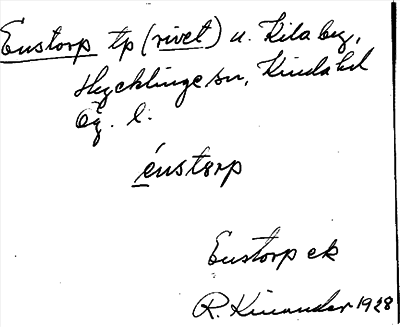 Eustorp tp (rivet) u. Kila by,
Hycklinge sn, Kinda hd
Ög. l.
éustørp
Eustorp ek
R. Kinander 1928